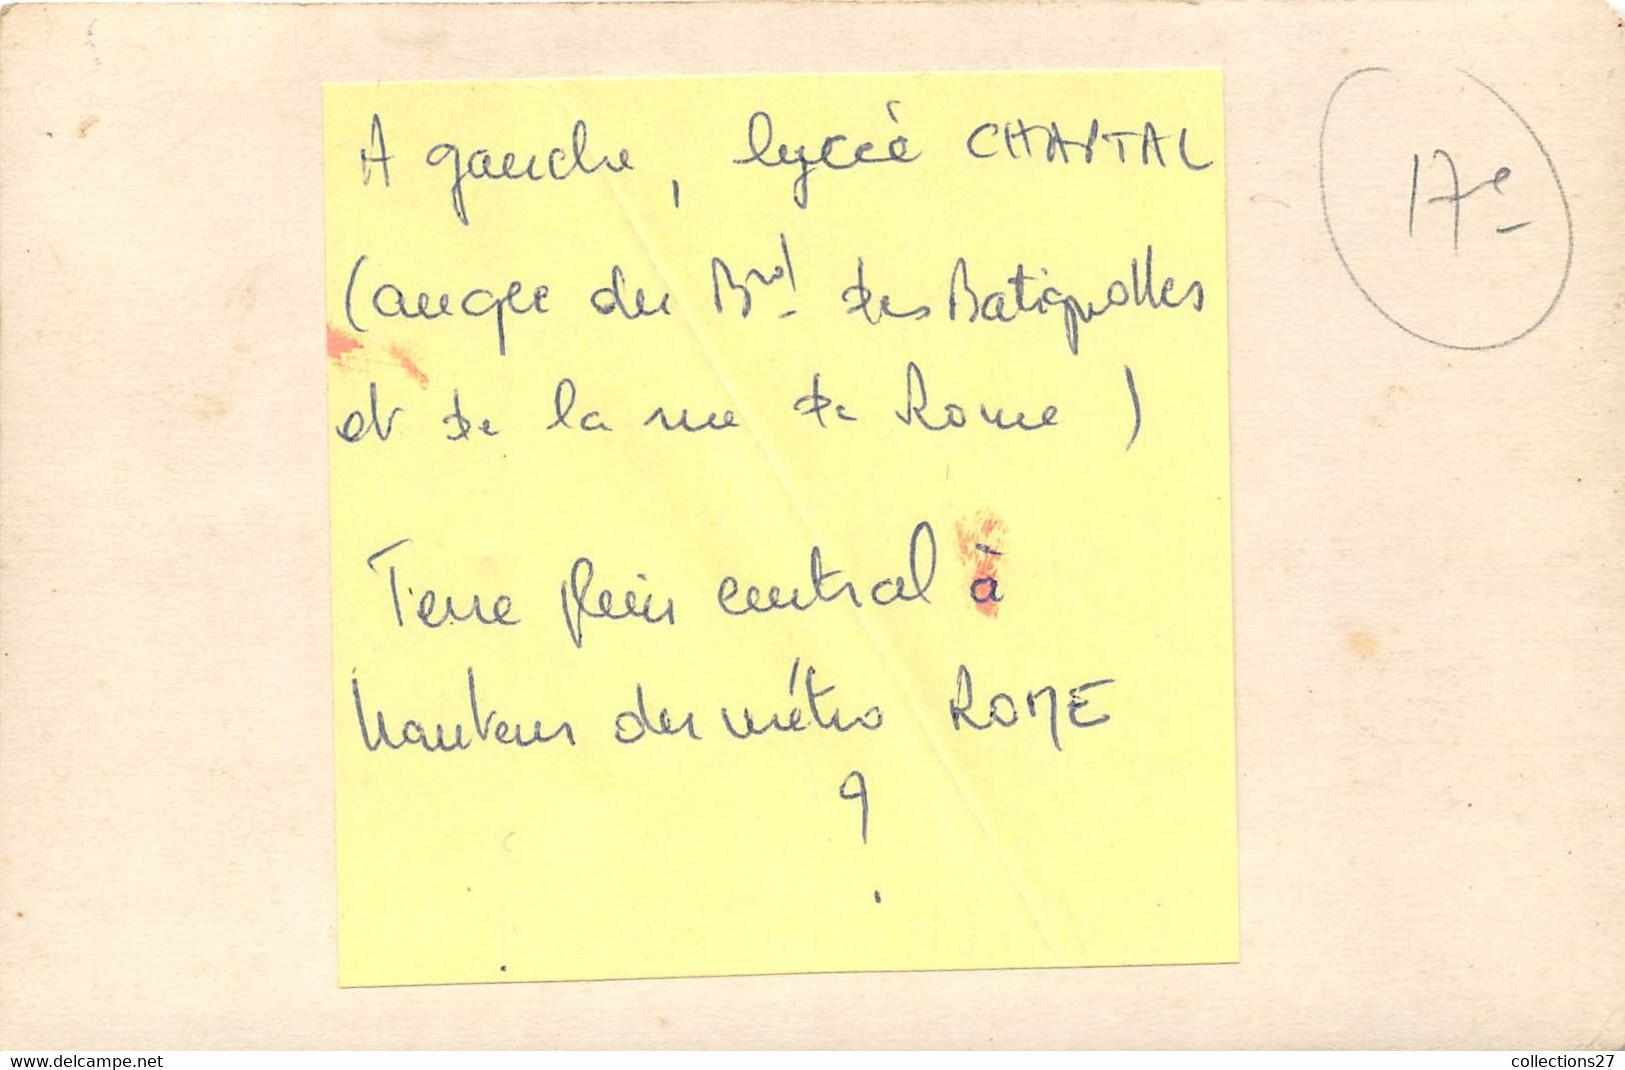 A gauche, lycée CHAPTAL
(angle du Brd des Batignolles
et de la rue de Rome)
Terre plein central à
hauteur du métro ROME
?
17e
www.delcampe.net
collections27